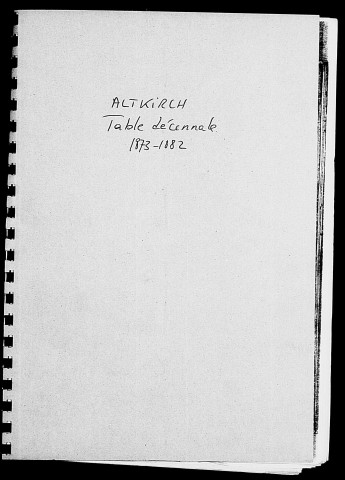 ALTKIRCH
Table décennale
1873-1882